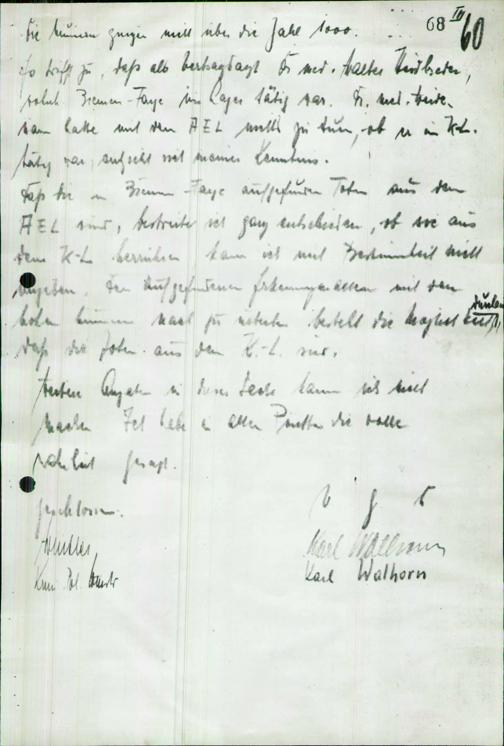 68 III 60
die Nummern gingen nicht über die Zahl 1000.
Es trifft zu, daß als Vertragsarzt Dr. med. Walter
wohnt Bremen-Farge im Lager tätig war. Dr. med. Heide-
mann hatte mit dem AEL nichts zu tun, ob er im K-L.
tätig war, entzieht sich meiner Kenntnis.
Daß die in Bremen-Farge aufgefundenen Toten aus dem
AEL sind, bestreite ich ganz entschieden, ob sie aus
dem K-L herrühren kann ich mit Bestimmtheit nicht
angeben. Den aufgefundenen Erkennungsmarken mit den
hohen Nummern nach zu urteilen besteht die Möglichkeit,
daß die Toten aus dem K.-L. sind.
Weitere Angaben in dieser Sache kann ich nicht
machen. Ich habe in allen Punkten die volle
Wahrheit gesagt.
Geschlossen: v g u
Karl Walhorn
Karl Walhorn